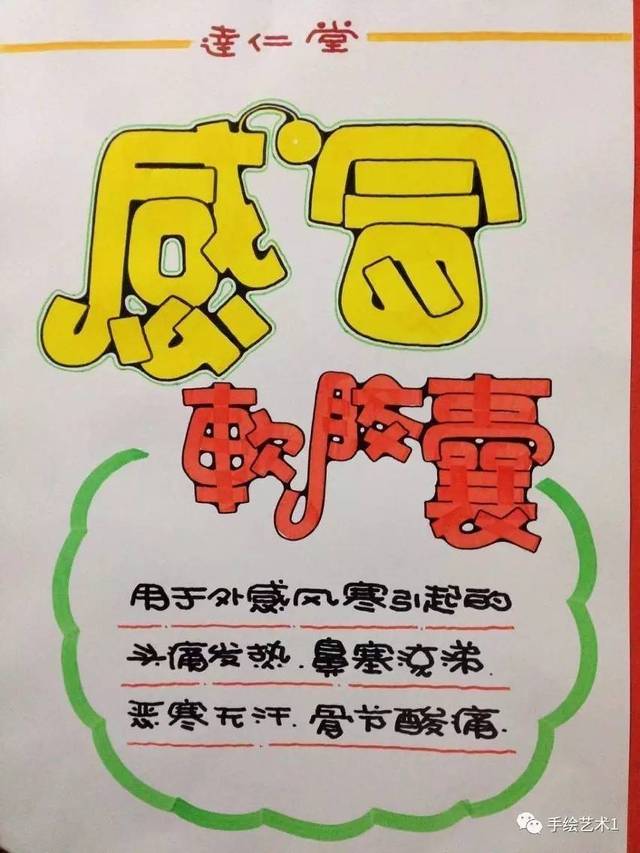 達仁堂
感冒
軟胶囊
用于外感风寒引起的
头痛发热.鼻塞流涕.
恶寒无汗.骨节酸痛.
手绘艺术1